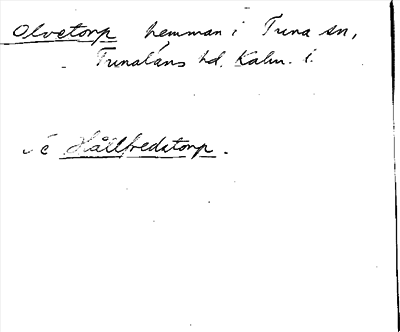 Olvetorp hemman i Tuna sn,
Tunaläns hd. Kalm. l.
Se Hållfredatorp.